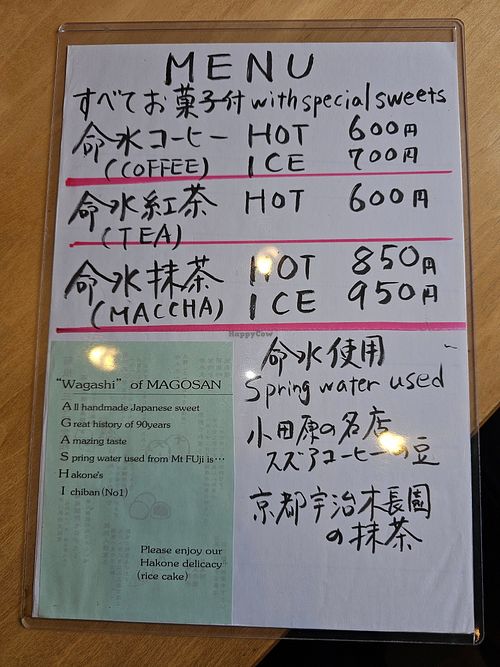 MENU
すべてお菓子付 with special sweets
命水コーヒー HOT 600円
(COFFEE) ICE 700円
命水紅茶 HOT 600円
(TEA)
命水抹茶 HOT 850円
(MACCHA) ICE 950円
HappyCow
命水使用
Spring water used
小田原の名店
スズアコーヒーの豆
京都宇治木長園
の抹茶
"Wagashi" of MAGOSAN
All handmade Japanese sweet
Great history of 90years
Amazing taste
Spring water used from Mt FUji is…
Hakone's
Ichiban (No1)
Please enjoy our
Hakone delicacy
(rice cake)